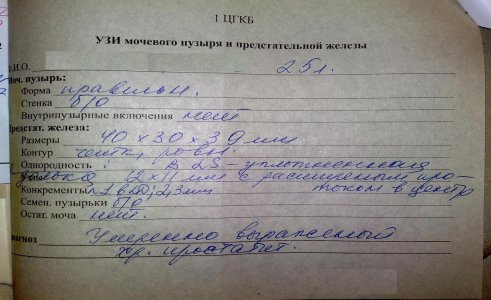 1 ЦГКБ
УЗИ мочевого пузыря и предстательной железы
Ф.И.О. 25л.
Моч. пузырь:
Форма правильн.
Стенка б/о
Внутрипузырные включения нет
Предстат. железа:
Размеры 40 x 30 x 39 мм
Контур четк, ровн.
Однородность : в 2S - уплотненная
долька 12 x 11 мм с расширеным про-
Конкременты 2, 3 мм током в центр
Семен. пузырьки б/о
Остат. моча нет.
Диагноз Умеренно выраженый
хр. простатит.